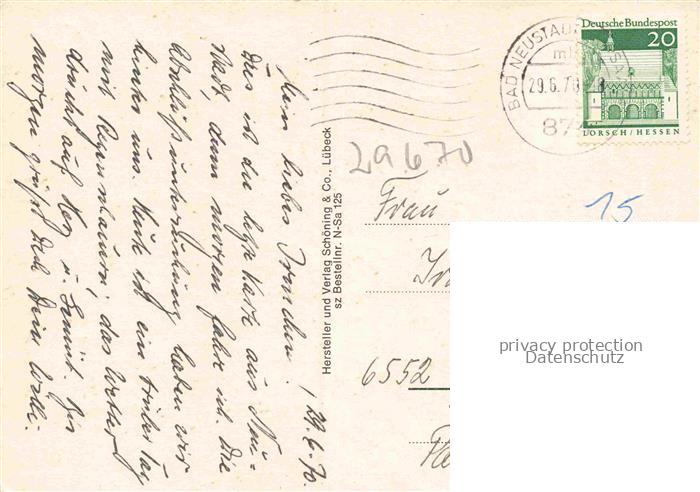 29.6.70.
Mein liebes Irmchen!
Dies ist die letzte Karte aus Neu-
stadt, denn morgen fahre ich. Die
Abschlußuntersuchung haben wir
hinter uns. Heute ist ein trüber Tag
mit Regenschauern; das Wetter
drückt auf Herz u. Gemüt. Bis
morgen grüßt Dich Deine
Hersteller und Verlag Schöning & Co., Lübeck
sz Bestellnr. N-Sa 125
BAD NEUSTADT
29.6.70
87
Deutsche Bundespost
20
LORSCH/HESSEN
29 6 70
15
Frau
6552
privacy protection
Datenschutz